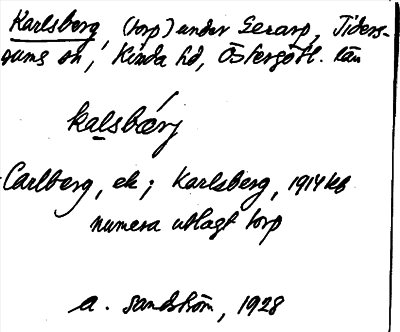 Karlsberg, (torp) under Gerarp, Tiders-
rums sn, Kinda hd, Östergötl. län
kalsbærj
Carlberg, ek; Karlsberg, 1914 kb
numera utlagt torp
A. Sandström, 1928